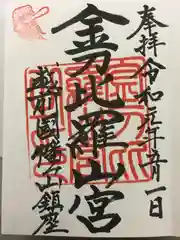 奉拝令和元年五月一日
金刀比羅山宮
州國幡山鎮座